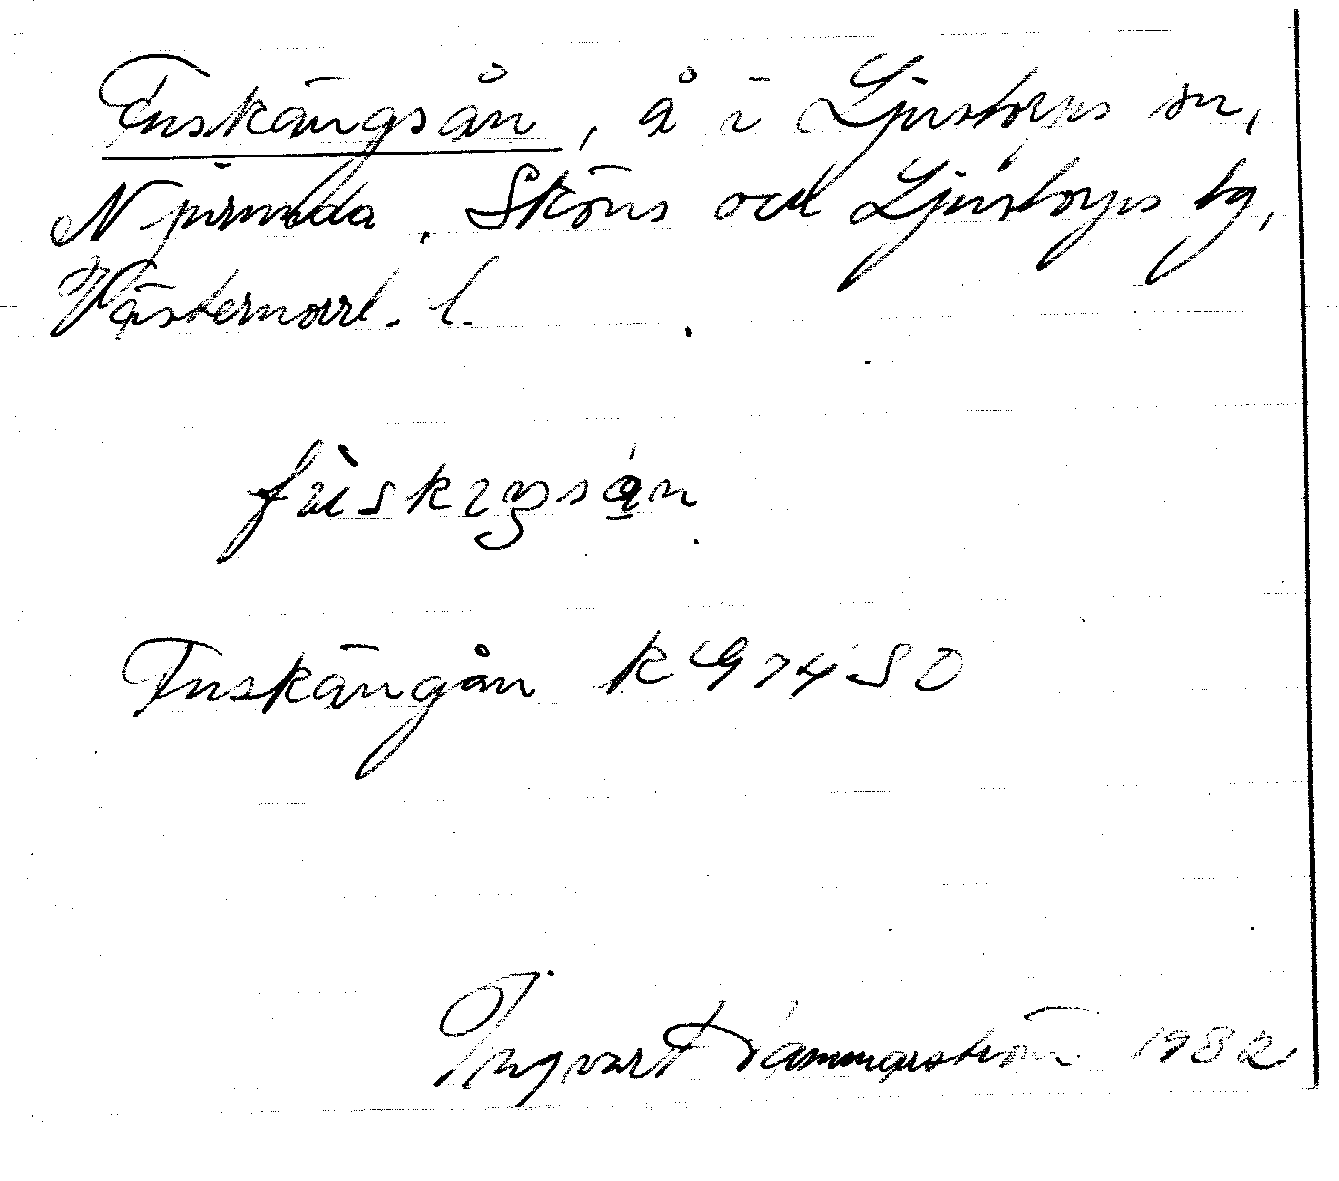 Fuskängsån, å i Ljustorps sn,
Njurunda, Sköns och Ljustorps tg,
Västernorrl. l.
Fuskängån K G 74 50
Ingvar Hammarström 1982